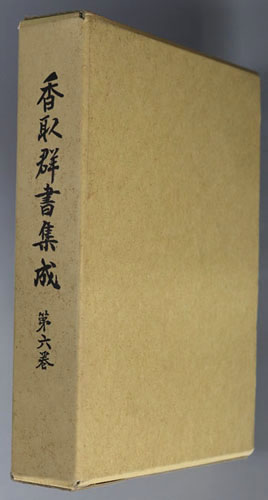 香取群書集成 第六巻